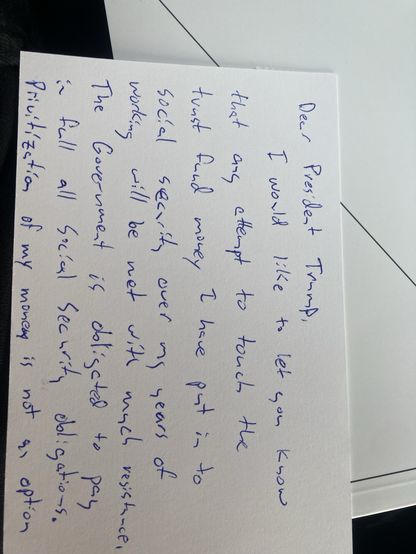 Dear President Trump,
I would like to let you know
that any attempt to touch the
trust fund money I have put in to
Social Security over my years of
working will be met with much resistance.
The Government is obligated to pay
in full all Social Security obligations.
Privitization of my money is not an option